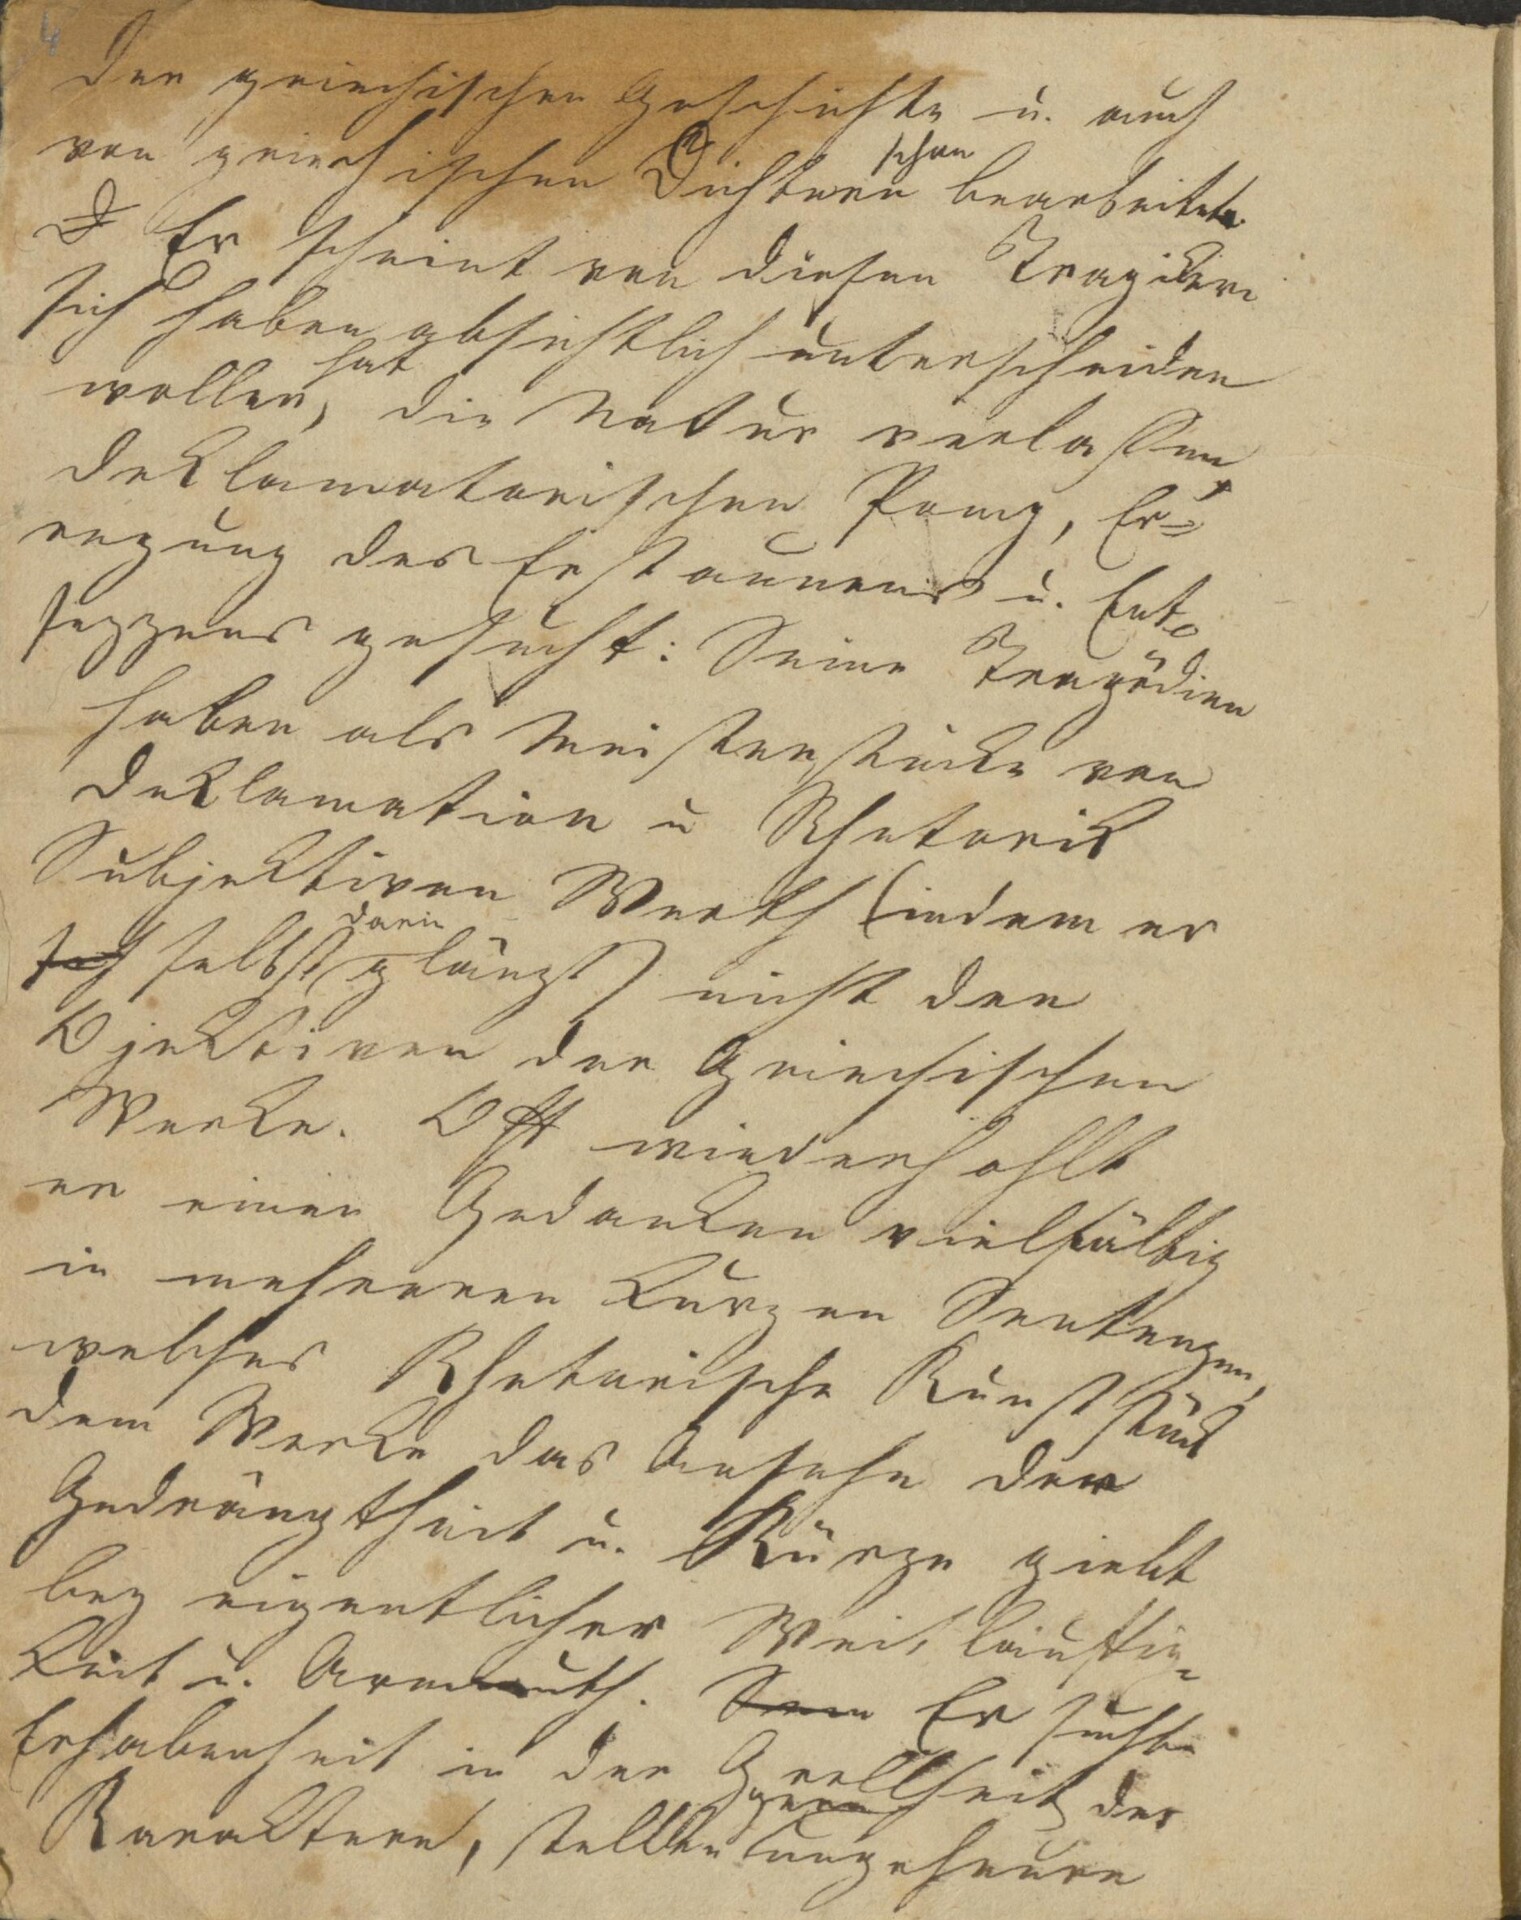 4
der griechischen Geschichte u. auch
von griechischen Dichtern schon bearbeitet.
D Er scheint von diesen Tragikern
sich haben absichtlich unterscheiden
wollen, hat die Natur verlassen,
deklamatorischen Pomp, Er=
regung des Erstaunens u. Ent=
sezzens gesucht: Seine Tragödien
haben als Meisterstücke von
Deklamation u Rhetorik
Subjektiven Werth (indem er
sich selbst darin glänzt) nicht den
Objektiven der Griechischen
Werke. Oft wiederhohlt
er einen Gedanken vielfältig
in mehreren kurzen Sentenzen,
welches Rhetorische Kunststück
dem Werke das Ansehn der
Gedrängtheit u. Kürze giebt
bey eigentlicher Weitläuftig=
keit u. Armuth. Sein Er suchte
Erhabenheit in der Grellheit der
Karaktere, stellte gern ungeheure